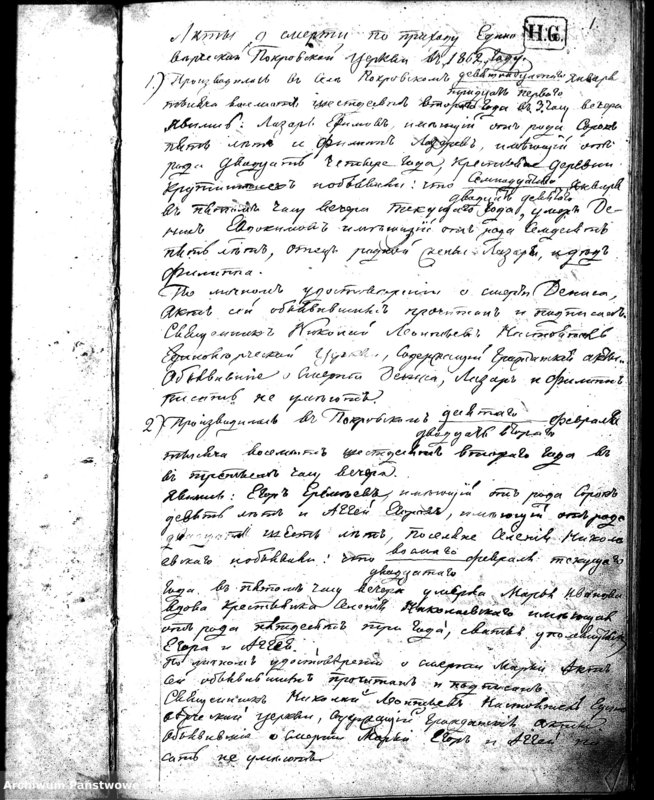 1
H.G.
Акты о смерти по приходу Едино
верческой Покровской Церкви въ 1862 Году.
1.) Производилось въ селѣ Покровскомъ девятнадцатаго Января
тридцать перваго
тысяча восемьсотъ шестьдесятъ втораго Года въ 3 часу вечера
Явились: Лазарь Ефимовъ, имѣющій отъ рода Сорокъ
пять лѣтъ и Филиппъ Лазаревъ, имѣющій отъ
рода двадцать четыре года, крестьяне деревни
объявили: что Семнадцатаго Января
двадцать девятаго
въ пятомъ часу вечера текущаго Года, умеръ Де-
нисъ Евдокимовъ имѣющій отъ рода Семдесятъ
пять лѣтъ, отецъ родной жены Лазаря, и дѣдъ
Филиппа.
По личномъ удостовѣреніи о смерти Дениса,
Актъ сей объявившимъ прочитанъ и подписанъ.
Священникъ Николай Леонтьевъ Настоятель
Единоверческой Церкви, Содержащій Гражданскіе акты.
Объявившіе о Смерти Дениса, Лазарь и Филиппъ
писать не умѣютъ.
2) Производилось въ Покровскомъ девятаго февраля
двадцать втораго
тысяча восемьсотъ шестьдесятъ втораго Года въ
въ третьемъ часу вечера.
Явились: Егоръ имѣющій отъ рода Сорокъ
девять лѣтъ и Аггей Егоровъ, имѣющій отъ рода
двадцать шесть лѣтъ, поселяне Селенія Никола
евскаго объявили: что восьмаго февраля текущаго
двадцатаго
Года въ пятомъ часу вечера умерла Марья Иванова
вдова крестьянка Селенія Николаевскаго имѣющая
отъ рода пятьдесятъ три года, сватья упомянутыхъ
Егора и Аггея.
По личномъ удостовѣреніи о смерти Марьи Актъ
сей объявившимъ прочитанъ и подписанъ.
Священникъ Николай Леонтьевъ Настоятель Едино
верческой Церкви, Содержащій Гражданскіе акты
Объявившіе о Смерти Марьи Егоръ и Аггей пи
сать не умѣютъ.
Archiwum Państwowe